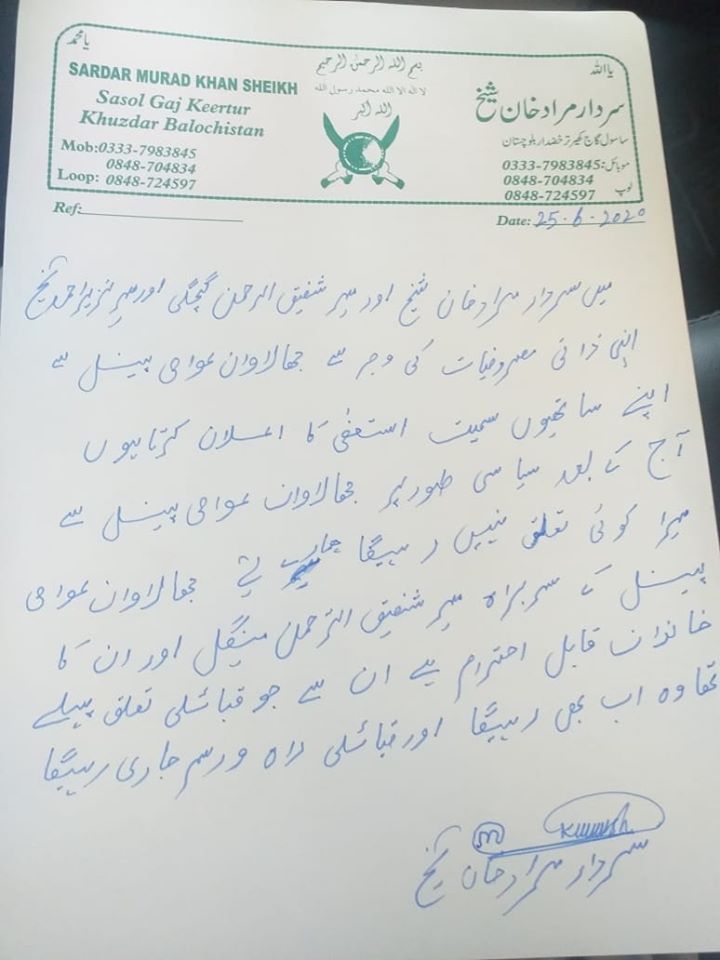 یا محمدؐ
یا اللہ
بسم اللہ الرحمٰن الرحیم
لا الہ الا اللہ محمد رسول اللہ
اللہ اکبر
SARDAR MURAD KHAN SHEIKH
Sasol Gaj Keertur
Khuzdar Balochistan
Mob:0333-7983845
0848-704834
Loop: 0848-724597
سردار مراد خان شیخ
ساسول گاج کھیرتر خضدار بلوچستان
موبائل: 0333-7983845
0848-704834
لوپ 0848-724597
Ref:
Date: 25.6.2020
میں سردار مراد خان شیخ اور میر شفیق الرحمن اور میر نزیر احمد شیخ
اپنی ذاتی مصروفیات کی وجہ سے جھالاوان عوامی پینل سے
اپنے ساتھیوں سمیت استعفٰی کا اعلان کرتا ہوں
آج کے بعد سیاسی طور پر جھالاوان عوامی پینل سے
میرا کوئی تعلق نہیں رہیگا ہمارے لئے جھالاوان عوامی
پینل کے سربراہ میر شفیق الرحمن مینگل اور ان کا
خاندان قابل احترام ہے ان سے جو قبائلی تعلق پہلے
تھا وہ اب بھی رہیگا اور قبائلی راہ و رسم جاری رہیگا
سردار مراد خان شیخ